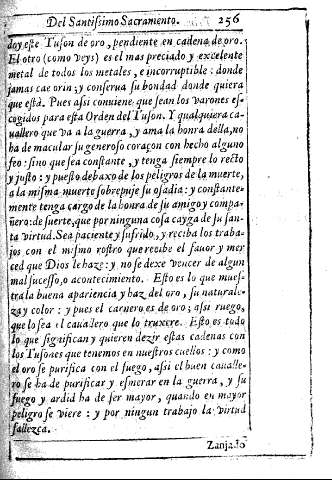 Del Santissimo Sacramento. 256
doy este Tuson de oro, pendiente en cadena de oro.
El otro (como veys) es el mas preciado y excelente
metal de todos los metales, e incorruptible: donde
jamas cae orin; y conserua su bondad donde quiera
que està. Pues assi conuiene que sean los varones es-
cogidos para esta Orden del Tuson. Y qualquiera ca-
uallero que va a la guerra, y ama la honra della, no
ha de macular su generoso coraçon con hecho alguno
feo: sino que sea constante, y tenga siempre lo recto
y justo: y puesto debaxo de los peligros de la muerte,
a la misma muerte sobrepuje su osadia: y constante-
mente tenga cargo de la honra de su amigo y compa-
ñero: de suerte, que por ninguna cosa cayga de su san-
ta virtud. Sea paciente y sufrido, y reciba los traba-
jos con el mismo rostro que recibe el fauor y mer
ced que Dios le haze: y no se dexe vencer de algun
mal sucesso, o acontecimiento. Esto es lo que mues-
tra la buena apariencia y haz del oro, su naturale-
za y color: y pues el carnero es de oro; assi ruego,
que lo sea el cauallero que lo truxere. Esto es todo
lo que significan y quieren dezir estas cadenas con
los Tusones que tenemos en nuestros cuellos: y como
el oro se purifica con el fuego, assi el buen caualle-
ro se ha de purificar y esmerar en la guerra, y su
fuego y ardid ha de ser mayor, quando en mayor
peligro se viere: y por ningun trabajo la virtud
fallezca.
Zanjado